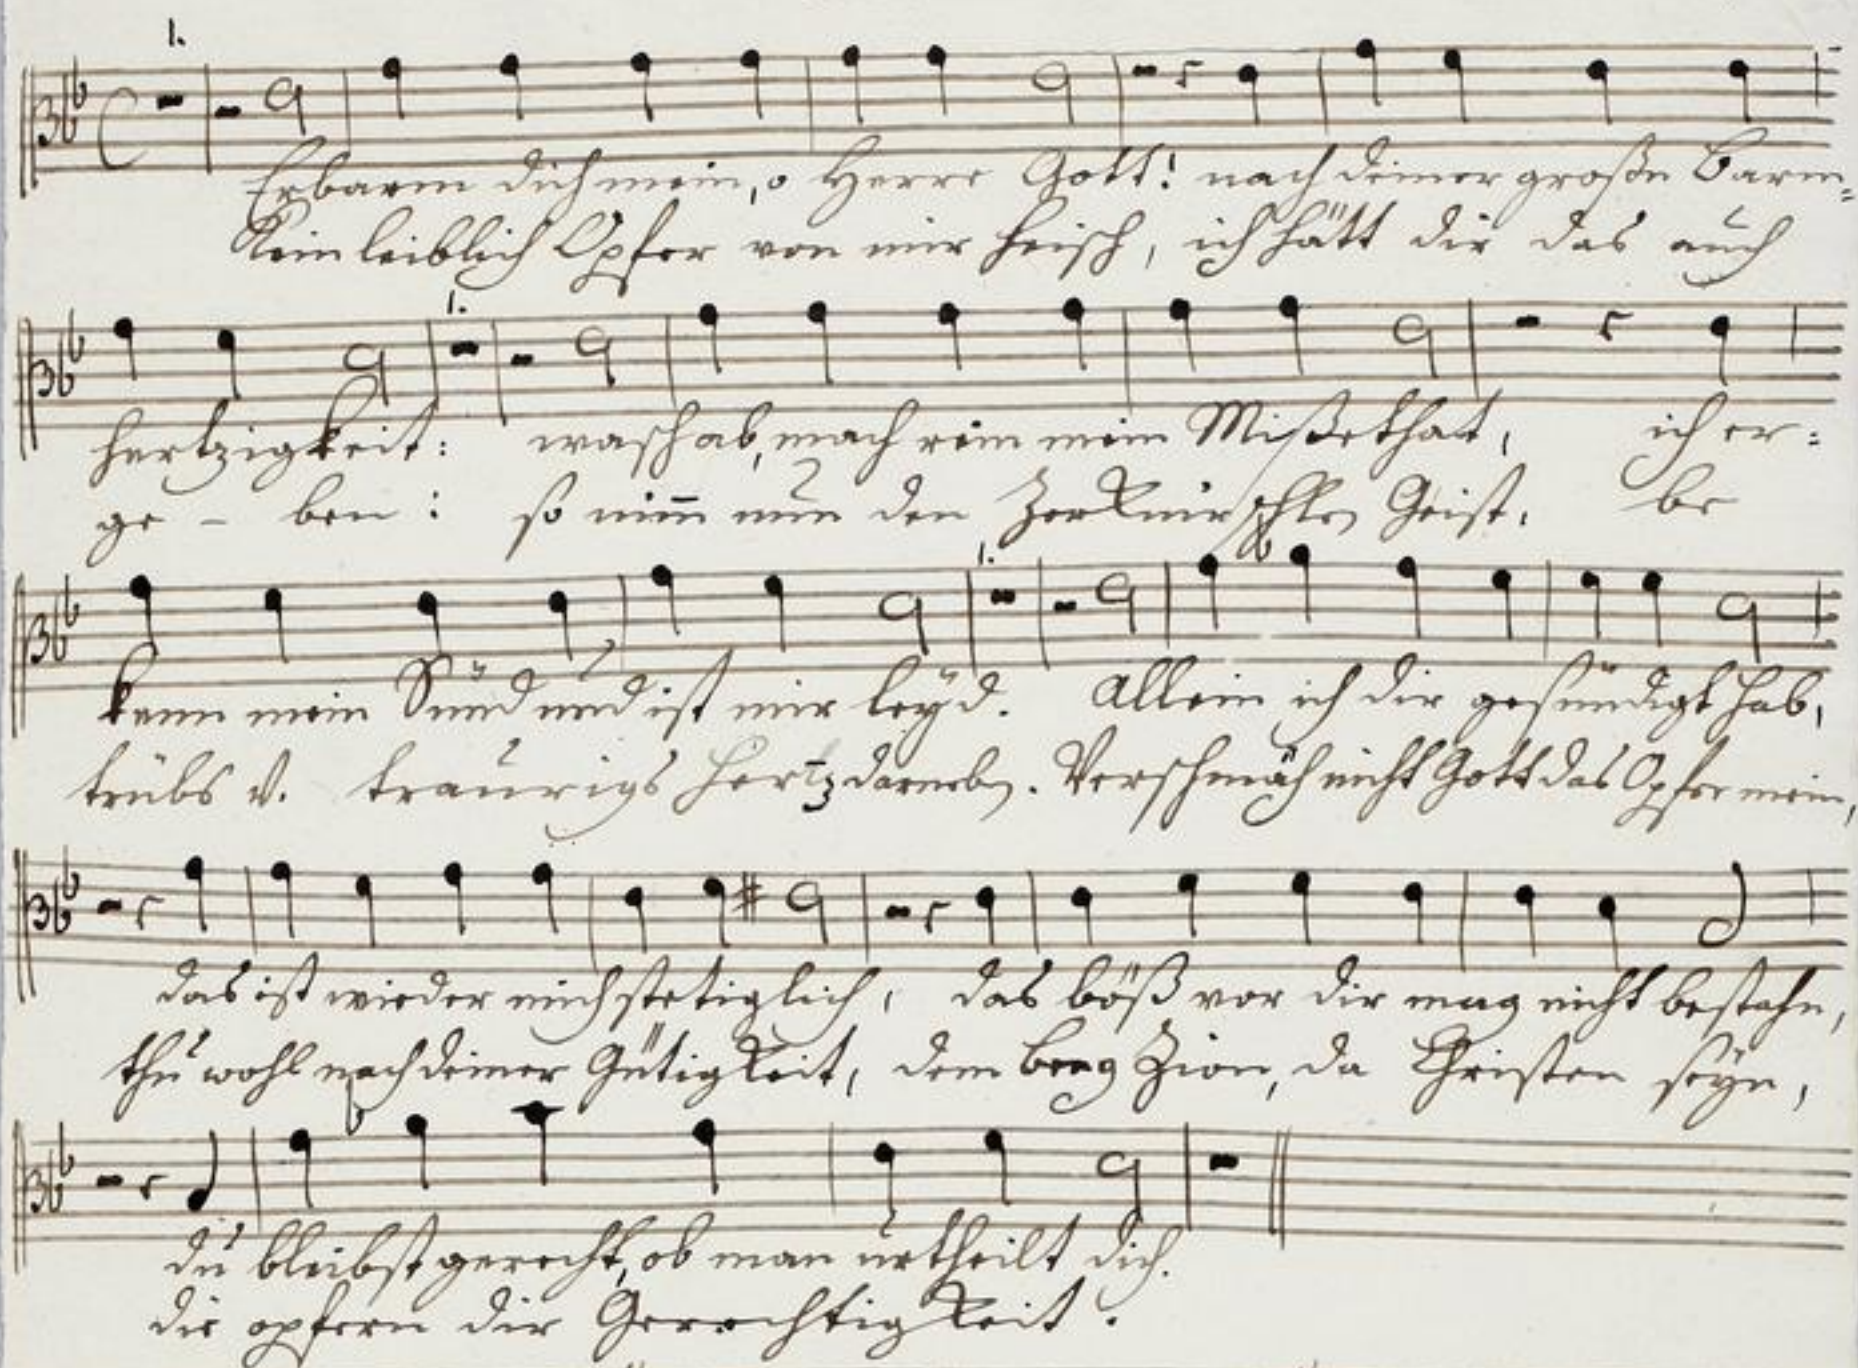 1.
Erbarm dich mein, o Herre Gott! nach deiner große Barm-
Kein leiblich Opfer von mir heisch, ich hätt dir das auch
1.
hertzigkeit: wasch ab, mach rein mein Mißethat, ich er:
ge - ben: so nim̅ nun den Zerknirschten Geist, be
1.
kenn mein Sünd und ist mir leyd. Allein ich dir gesündigt hab,
trübs v. traurigs Hertz darneben. Verschmäh nicht Gott das Opfer mein,
das ist wieder mich stetiglich, das böß vor dir mag nicht bestahn,
thu wohl nach deiner Gütigkeit, dem berg Zion, da Christen seyn,
du bleibst gerecht, ob man urtheilt dich.
die opfern dir Gerechtigkeit.